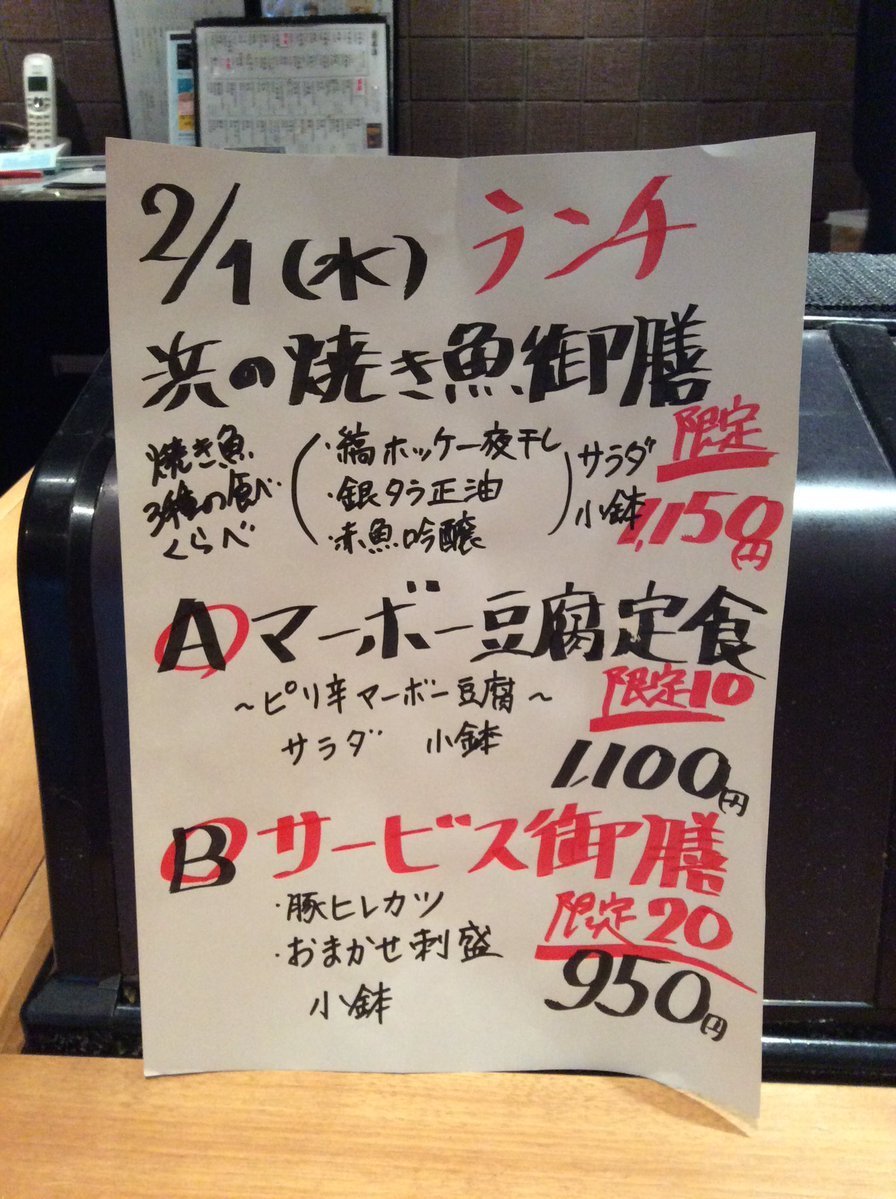 2/1(水) ランチ
浜の焼き魚御膳
焼き魚
3種の食べ
くらべ
・縞ホッケ一夜干し
・銀タラ正油
・赤魚吟醸
サラダ
小鉢
限定
1,150円
A マーボー豆腐定食
～ピリ辛マーボー豆腐～
サラダ 小鉢
限定10
1,100円
B サービス御膳
・豚ヒレカツ
・おまかせ刺盛
小鉢
限定20
950円